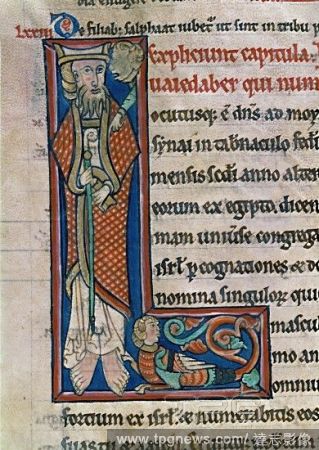 LXXIII De filiab; salphaat iubet ut sint in tribu p
Expliciunt capitula.
uaiedaber qui num
L
ocutusq; ē dn̄s ad moy
synai in tab̄naculo
mensis sc̄di anno alter
eorum ex egipto. dicen
mam uniuse congrega
isrl̄ p cognationes & do
nomina singuloꝝ qui
mascul
mo an
omniu
fortium ex isrl̄. & numerabitis eos
suas tu &
www.tpgnews.com / 達志影像